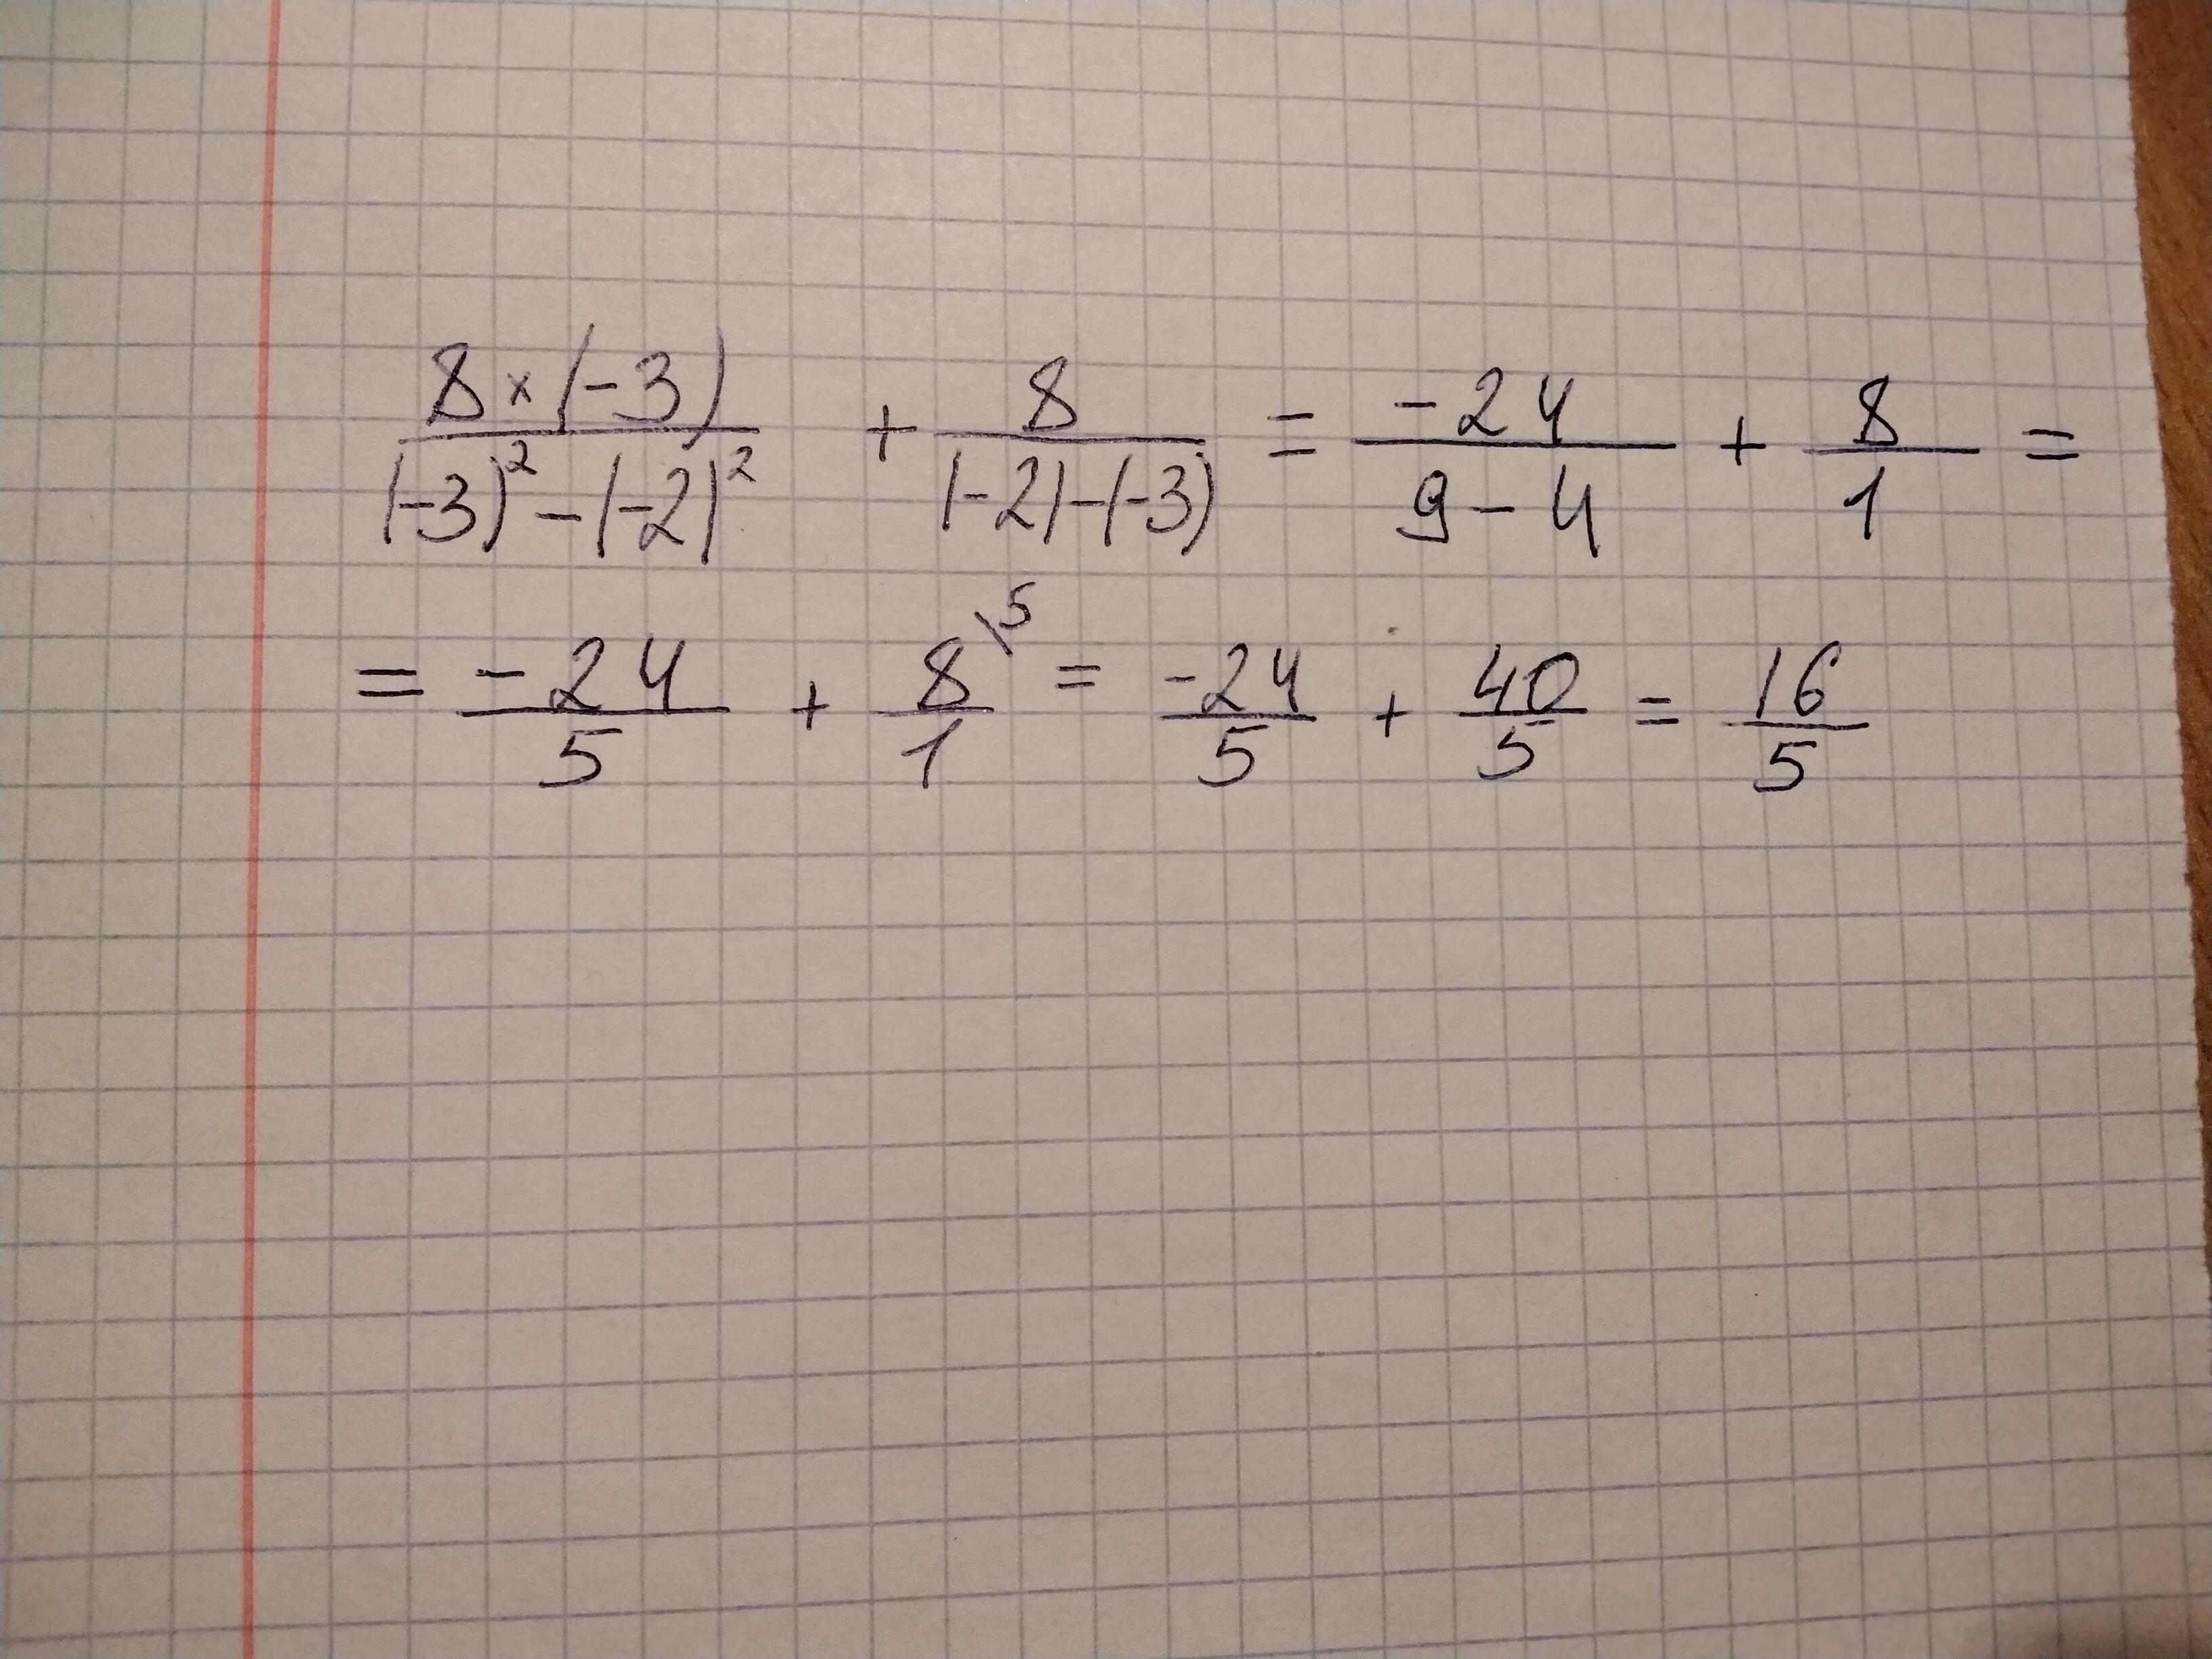 8×(-3)/((-3)²-(-2)²) + 8/((-2)-(-3)) = -24/(9-4) + 8/1 =
= -24/5 + 8/1\5 = -24/5 + 40/5 = 16/5